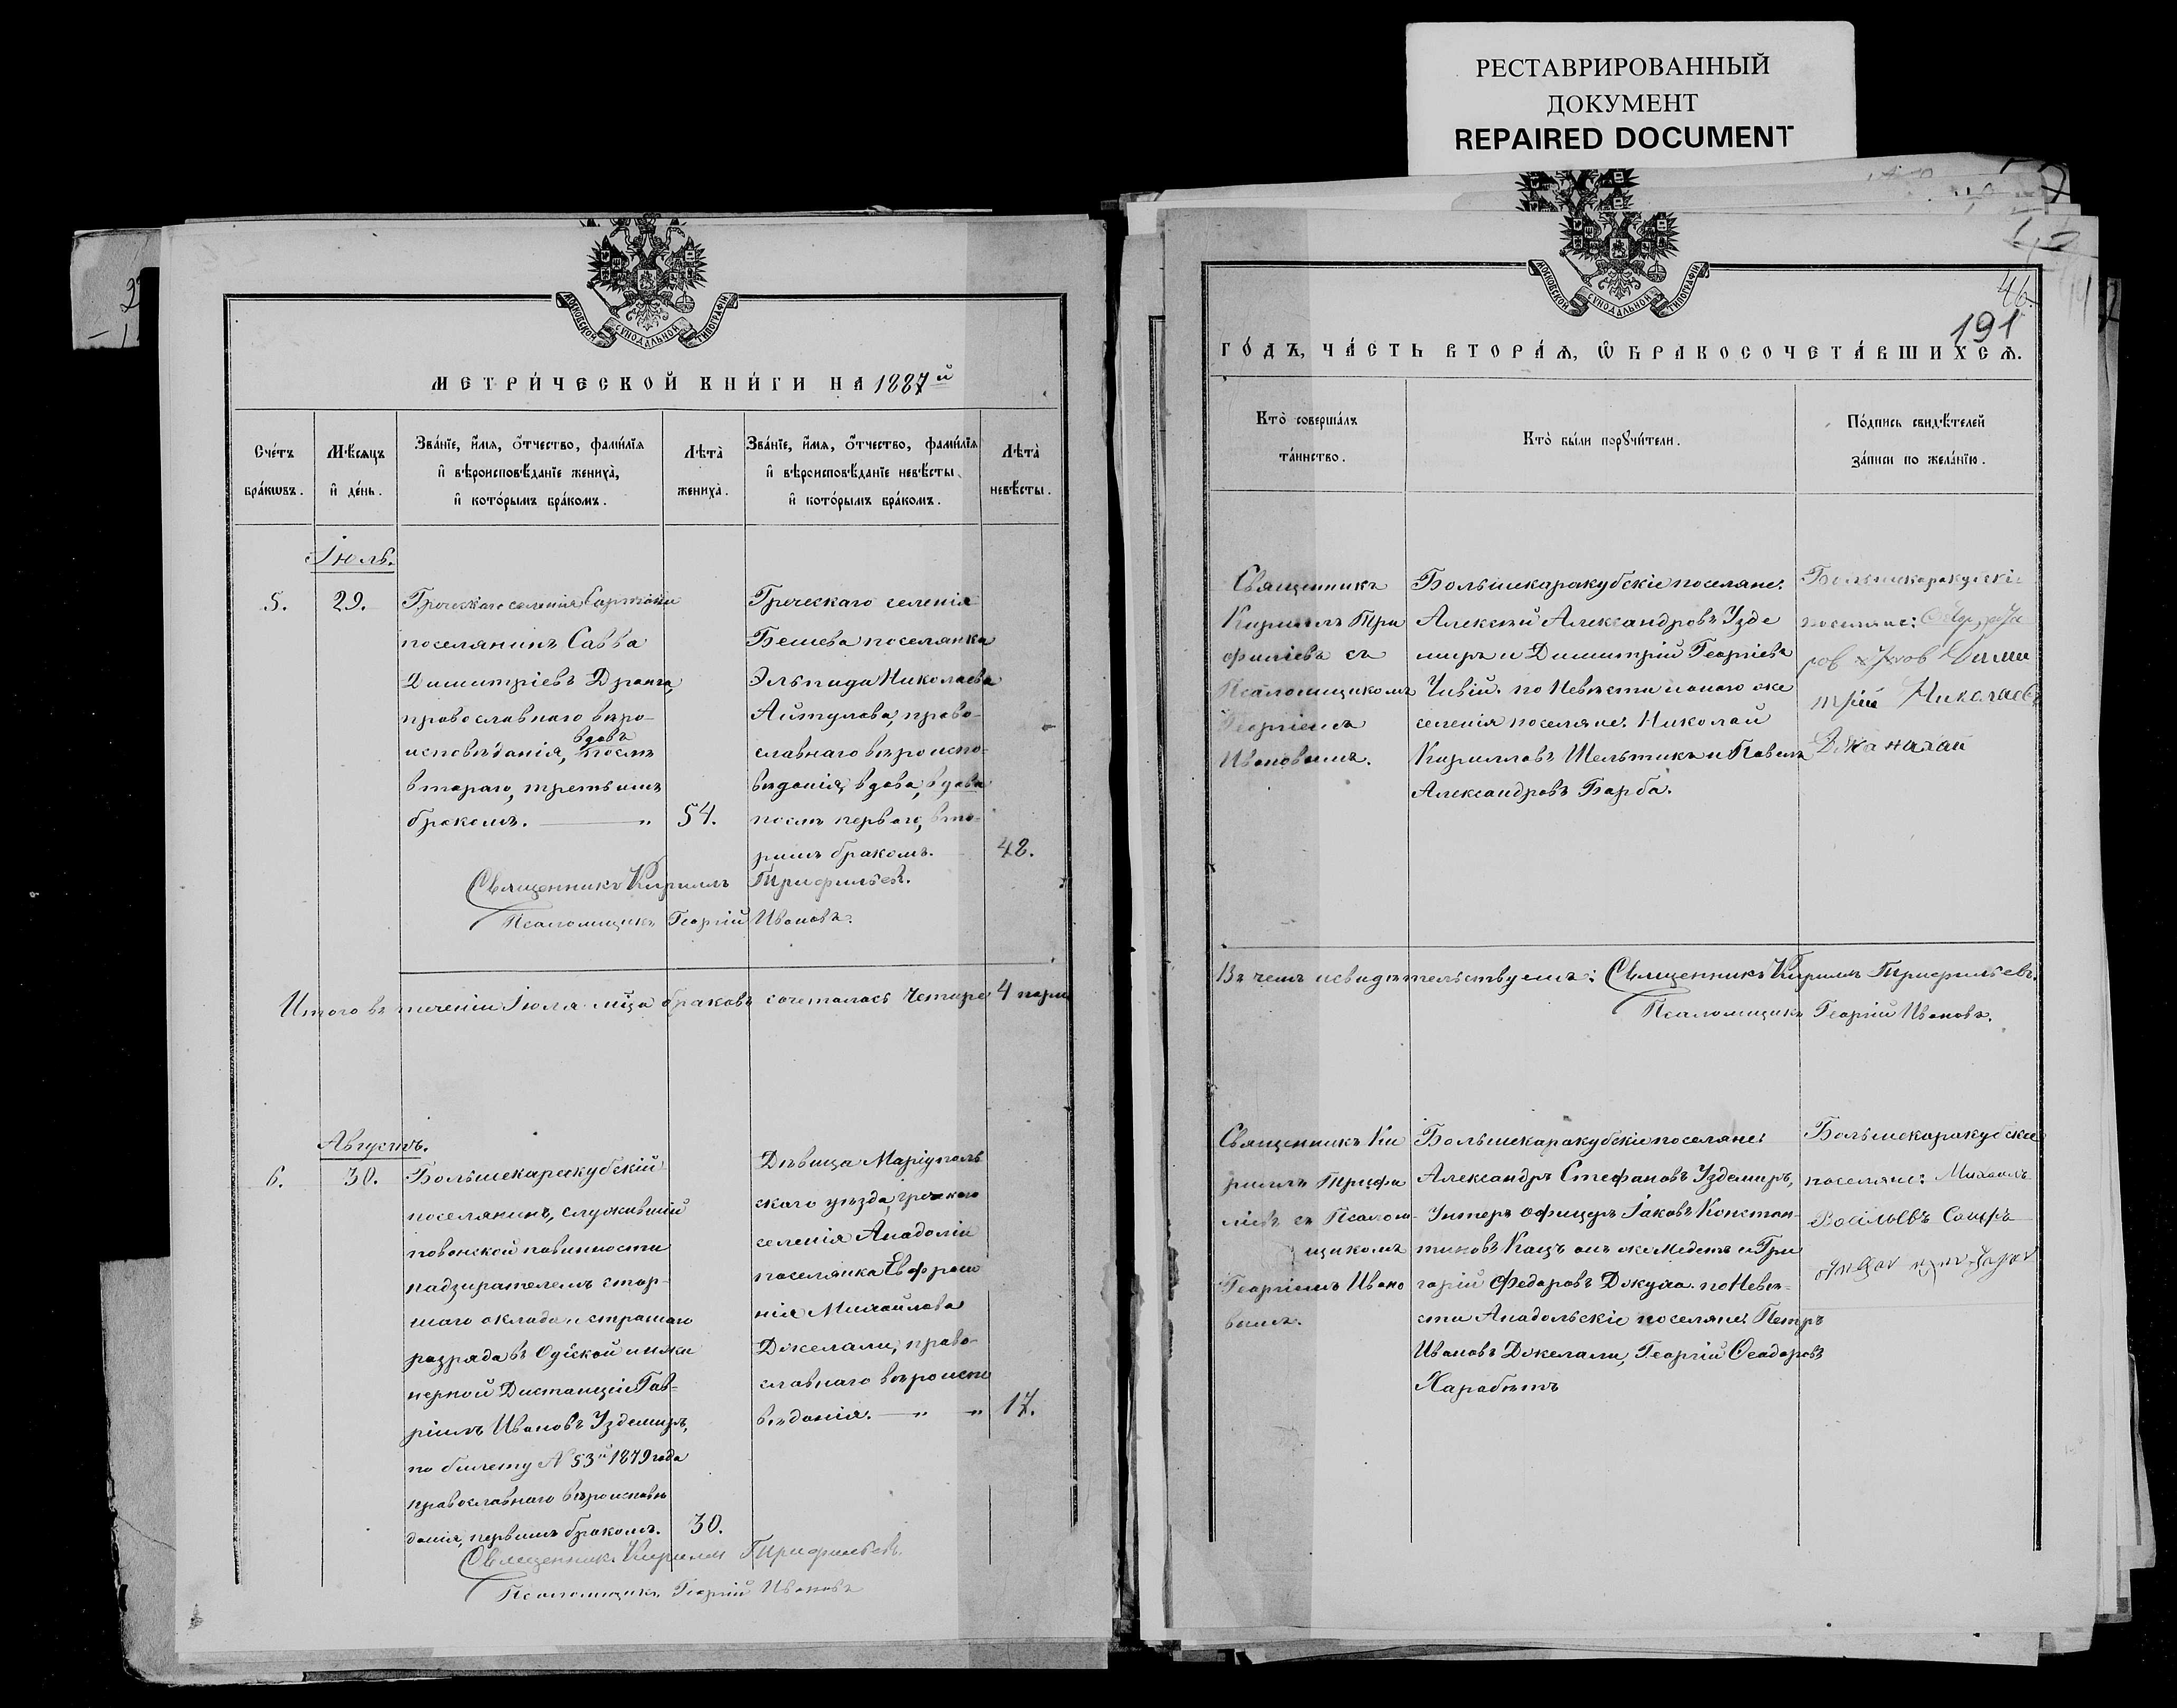 РЕСТАВРИРОВАННЫЙ
ДОКУМЕНТ
REPAIRED DOCUMENT
МОСКОВСКОЙ СѴНОДАЛЬНОЙ ТИПОГРАФІИ
МЕТРИ́ЧЕСКОЙ КНИ́ГИ НА 1887й
Сче́тъ бра́кѡвъ.
Мѣ́сяцъ и҆ де́нь.
Зва́нїе, и҆́мя, о҆́тчество, фами́лїя
и҆ вѣроисповѣ́данїе жениха̀,
и҆ кото́рымъ бра́комъ.
Лѣта̀ жениха̀.
Зва́нїе, и҆́мя, о҆́тчество, фами́лїя
и҆ вѣроисповѣ́данїе невѣ́сты
и҆ кото́рымъ бра́комъ.
Лѣта̀ невѣ́сты.
Іюль.
5.
29.
Греческаго селенія
поселянинъ Савва
Димитріевъ Дранга,
православнаго вѣро-
исповѣданія, вдовъ послѣ
втораго, третьимъ
бракомъ. — "
54.
Греческаго селенія
Бешева поселянка
Эльпида Николаева
Айтулова, право-
славнаго вѣроиспо-
вѣданія, вдова, вдова
послѣ перваго, вто-
рымъ бракомъ.
42.
Священникъ Кириллъ Трифильевъ.
Псаломщикъ Георгій Ивановъ.
Итого въ теченіи Іюля мца браковъ сочеталось Четыре 4 пары
Августъ.
6.
30.
Большекаракубскій
поселянинъ, служившій
повинности
надзирателемъ стар-
шаго оклада
разряда въ инже
нерной Дистанціи Гав-
ріилъ Ивановъ Уздемиръ,
по билету № 53й 1879 года
православнаго вѣроисповѣ
данія, первымъ бракомъ.
30.
Дѣвица Маріуполь
скаго уѣзда, греческаго
селенія Анадоліи
поселянка Евфроси
нія Михайлова
Джелали, право-
славнаго вѣроиспо
вѣданія. — " — "
17.
Священникъ Кириллъ Трифильевъ.
Псаломщикъ Георгій Ивановъ
МОСКОВСКОЙ СѴНОДАЛЬНОЙ ТИПОГРАФІИ
46.
191
ГО́ДЪ, ЧА́СТЬ ВТОРА́Я, Ѡ҆ БРАКОСОЧЕТА́ВШИХСЯ.
Кто̀ соверша́лъ
та́инство.
Кто̀ бы́ли порꙋчи́тели.
По́дпись свидѣ́телей
за́писи по жела́нїю.
Священникъ
Кириллъ Три
филіевъ съ
Псаломщикомъ
Георгіемъ
Ивановымъ.
Большекаракубскіе поселяне:
Алексѣй Александровъ Узде
миръ и Димитрій Георгіевъ
Чивій. по Невѣсти и онаго же
селенія поселяне: Николай
Кирилловъ Шельтикъ и Павелъ
Александровъ Барба.
Большекаракубскіе
поселяне:
Дими
трій Николаевъ
Джаналай
Въ чемъ и свидѣтельствуемъ: Священникъ Кириллъ Трифильевъ.
Псаломщикъ Георгій Ивановъ.
Священникъ Ки
риллъ Трифи
ліевъ съ Псалом-
щикомъ
Георгіемъ Ивано
вымъ.
Большекаракубскіе поселяне:
Александръ Стефановъ Уздемиръ,
Унтеръ офицеръ Іаковъ Констан-
тиновъ Кацъ онъ же и Гри
горій Федоровъ Джума. по Невѣ-
сти Анадольскіе поселяне: Петръ
Ивановъ Джелали, Георгій Ѳеодоровъ
Харабетъ
Большекаракубскіе
поселяне: Михаилъ